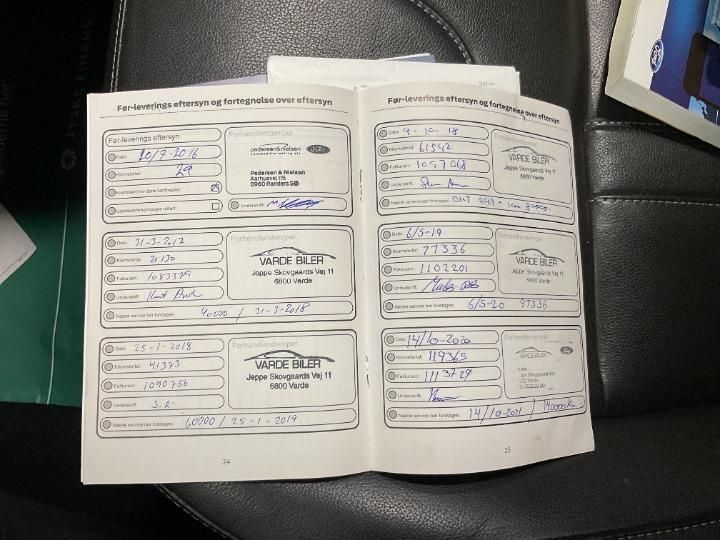 JYSKE FINANS
Ford
Før-leverings eftersyn og fortegnelse over eftersyn
Før-leverings eftersyn
Dato: 20/9-2016
Kilometertal: 29
Underskrift:
Forhandlerstempel
pedersen&nielsen
Ford
Pedersen & Nielsen
Aarhusvej 175
8960 Randers SØ
Dato: 31-3-2017
Kilometertal: 21130
Fakturanr.: 1083379
Underskrift:
Næste service bør foretages: 40000 / 31-3-2018
Forhandlerstempel
VARDE BILER
Jeppe Skovgaards Vej 11
6800 Varde
Dato: 25-1-2018
Kilometertal: 41373
Fakturanr.: 1090756
Underskrift: S.R.
Næste service bør foretages: 60000 / 25-1-2019
Forhandlerstempel
VARDE BILER
Jeppe Skovgaards Vej 11
6800 Varde
24
Før-leverings eftersyn og fortegnelse over eftersyn
Dato: 9-10-18
Kilometertal: 61542
Fakturanr.: 1097068
Underskrift:
Næste service bør foretages: OKT 2019 -
Forhandlerstempel
VARDE BILER
Jeppe Skovgaards Vej 11
6800 Varde
Dato: 6/5-19
Kilometertal: 77336
Fakturanr.: 1102201
Underskrift:
Næste service bør foretages: 6/5-20 97336
Forhandlerstempel
VARDE BILER
Jeppe Skovgaards Vej 11
6800 Varde
Dato: 14/10-2020
Kilometertal: 119365
Fakturanr.: 1113729
Underskrift:
Næste service bør foretages: 14/10-2021 / 140000 km
Forhandlerstempel
Ford
VARDE BILER
Jeppe Skovgaards Vej 11
6800 Varde
25